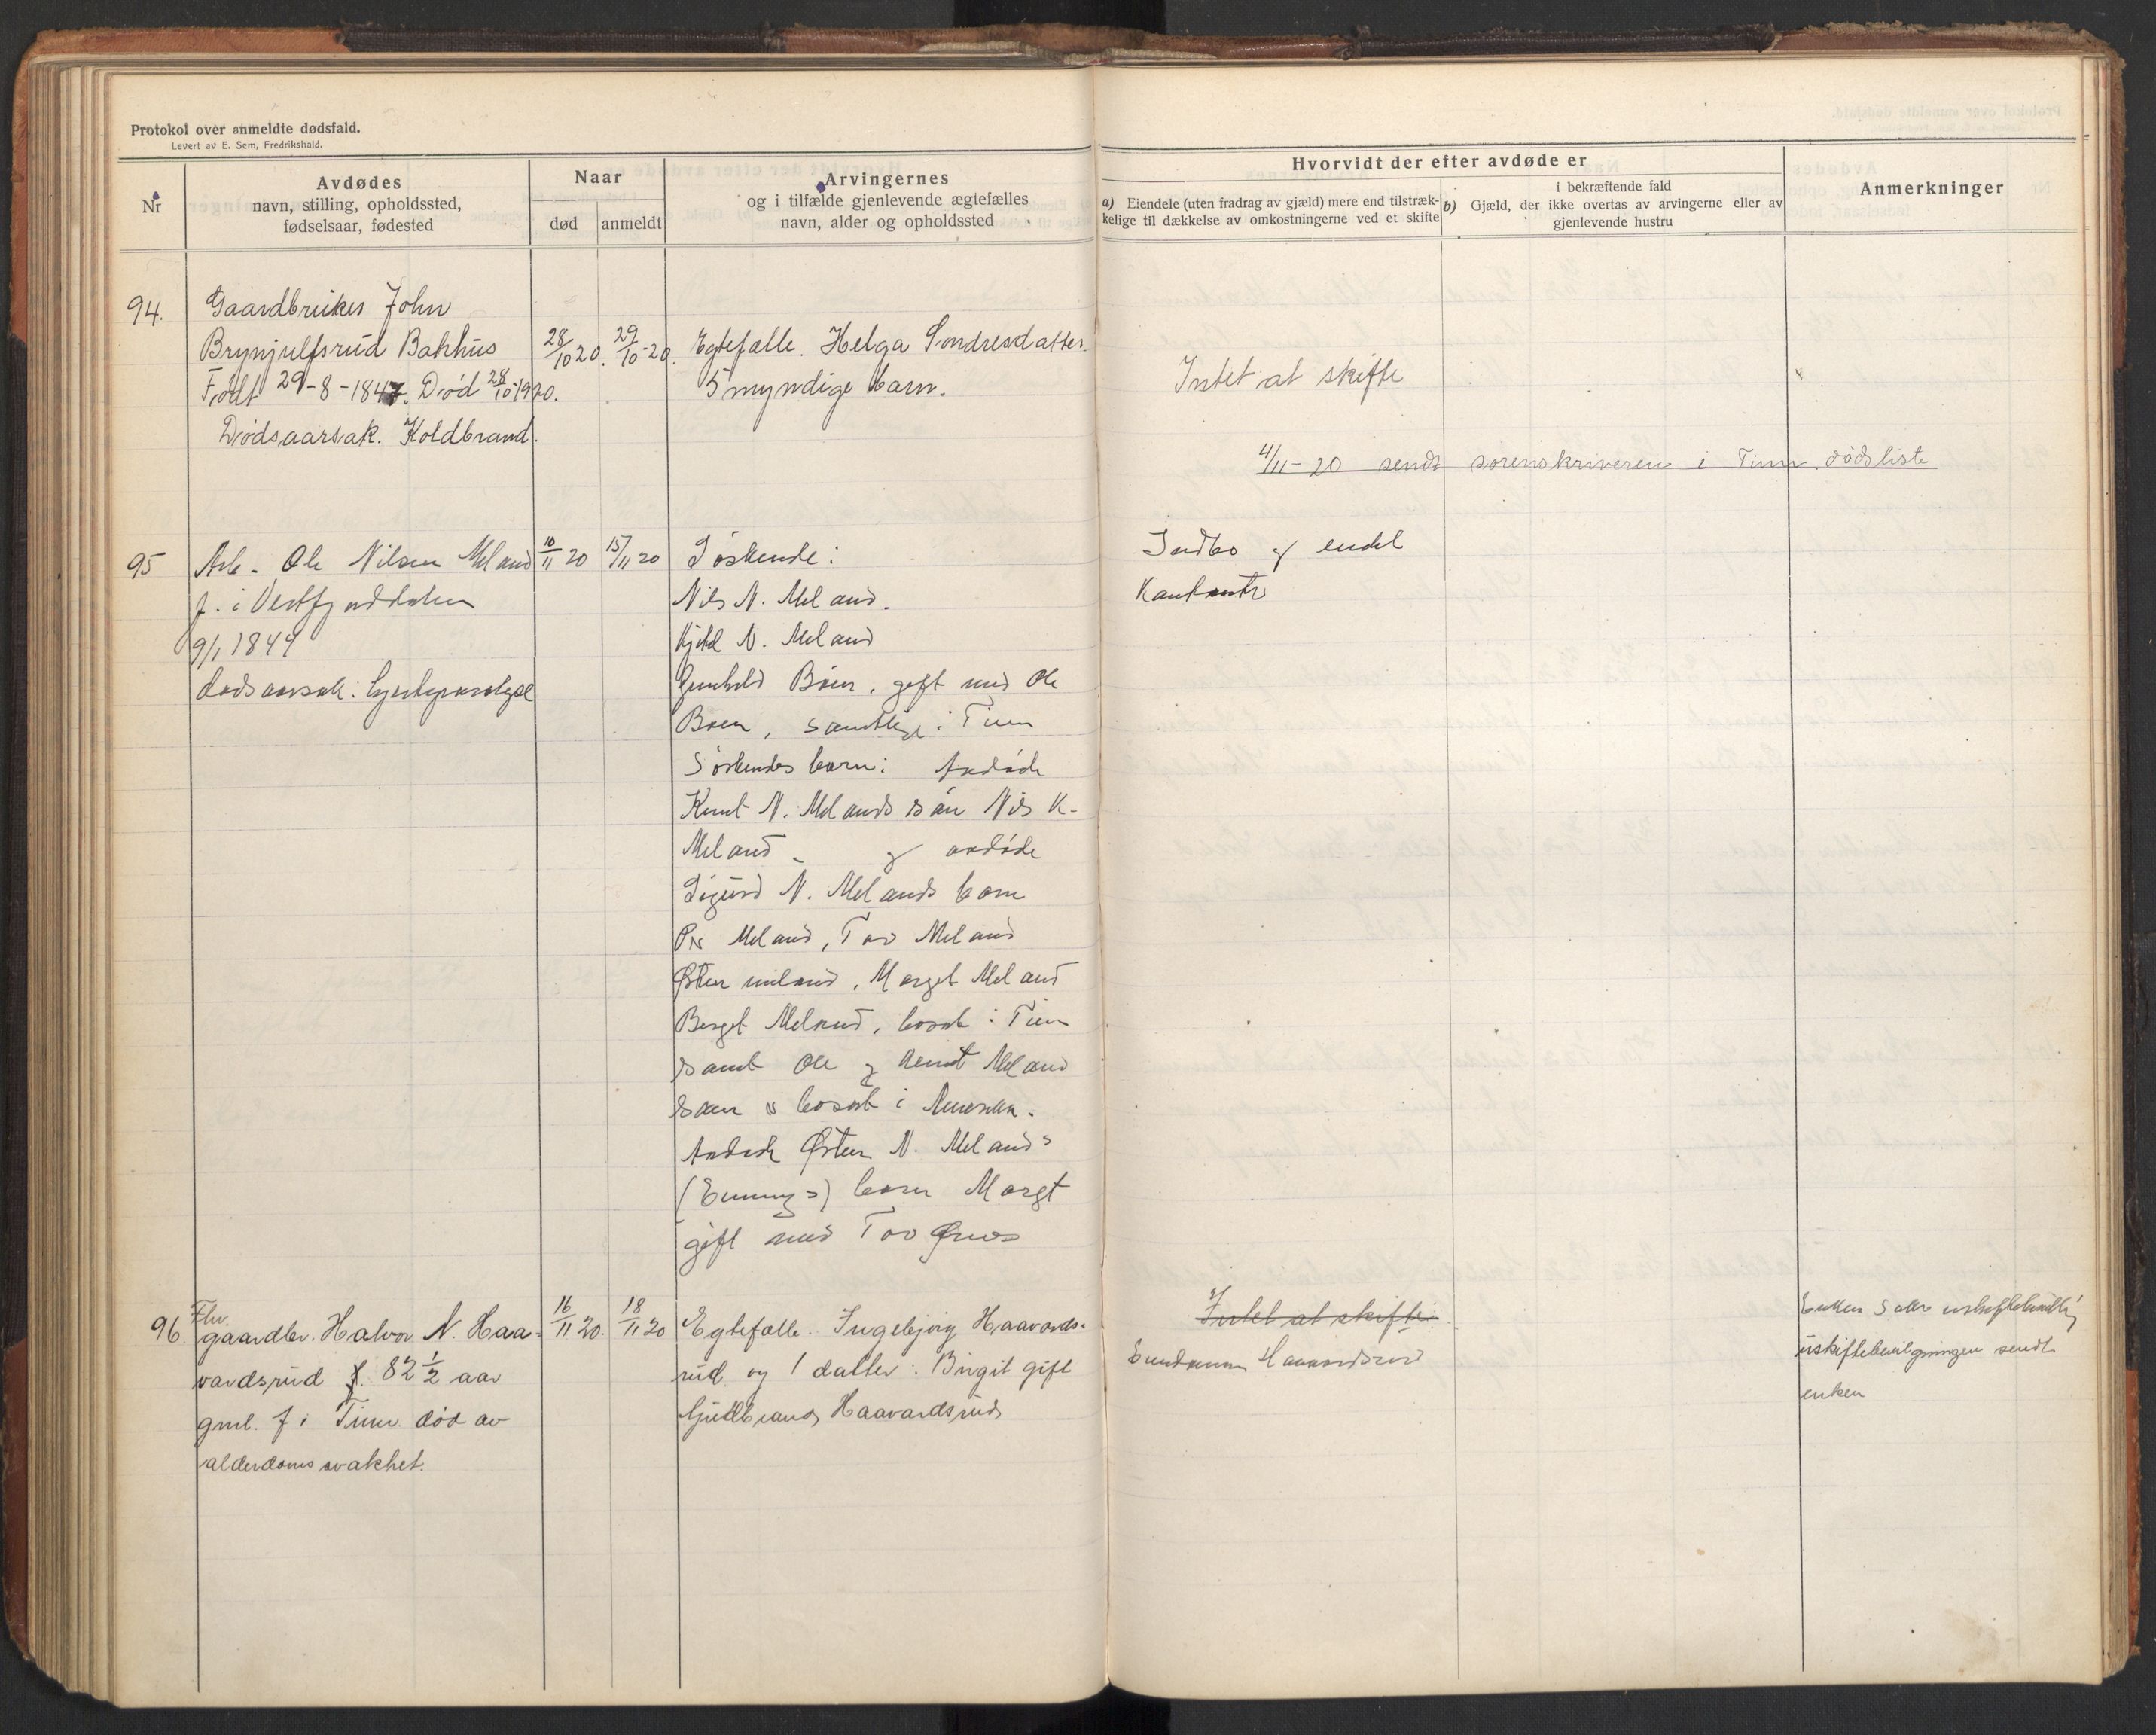 Protokol over anmeldte dødsfald.
Levert av E. Sem, Fredrikshald.
Nr
Avdødes
navn, stilling, opholdssted,
fødselsaar, fødested
Naar
død
anmeldt
Arvingernes
og i tilfælde gjenlevende ægtefælles
navn, alder og opholdssted
Hvorvidt der efter avdøde er
a) Eiendele (uten fradrag av gjæld) mere end tilstræk-
kelige til dækkelse av omkostningerne ved et skifte
i bekræftende fald
b) Gjæld, der ikke overtas av arvingerne eller av
gjenlevende hustru
Anmerkninger
94.
Gaardbruker John
Brynjulfsrud Bakhus
Født 29-8-1847. Død 28/10-1920.
Dødsaarsak. Koldbrand.
28/10 20.
29/10-20.
Egtefælle. Helga Sondresdatter.
5 myndige barn.
Intet at skifte
4/11-20 sendt sorenskriveren i Tinn dødsliste
95
Arb. Ole Nilsen Meland
f. i Vestfjorddalen
9/1 1844
dødsaarsak: hjerteparalyse
10/11 20
15/11 20
Søskende:
Nils N. Meland.
Kjetil N. Meland
Gunhild Bøen, gift med Ole
Bøen, samtlige i Tinn
Søskendes barn: Avdøde
Knut N. Melands søn Nils K.
Meland og avdøde
Sigurd N. Melands barn
Meland, Tov Meland
Østen Meland, Marget Meland
Berget Meland, bosat i Tinn
samt Ole og Knut Meland
bosat i Amerika.
Avdøde Østen N. Melands
barn Margt
gift med Tov
Indbo og endel
kontanter
96.
Fhv.
gaardbr. Halvor N. Haa-
vardsrud f. 82 1/2 aar
gml. f i Tinn død av
alderdomssvakhet.
16/11 20.
18/11 20
Egtefælle. Ingebjørg Haavards-
rud og 1 datter: Birgit gift
Gudbrand Haavardsrud
Intet at skifte.
Haavardsrud
Enken
uskiftebevilgningen sendt
enken